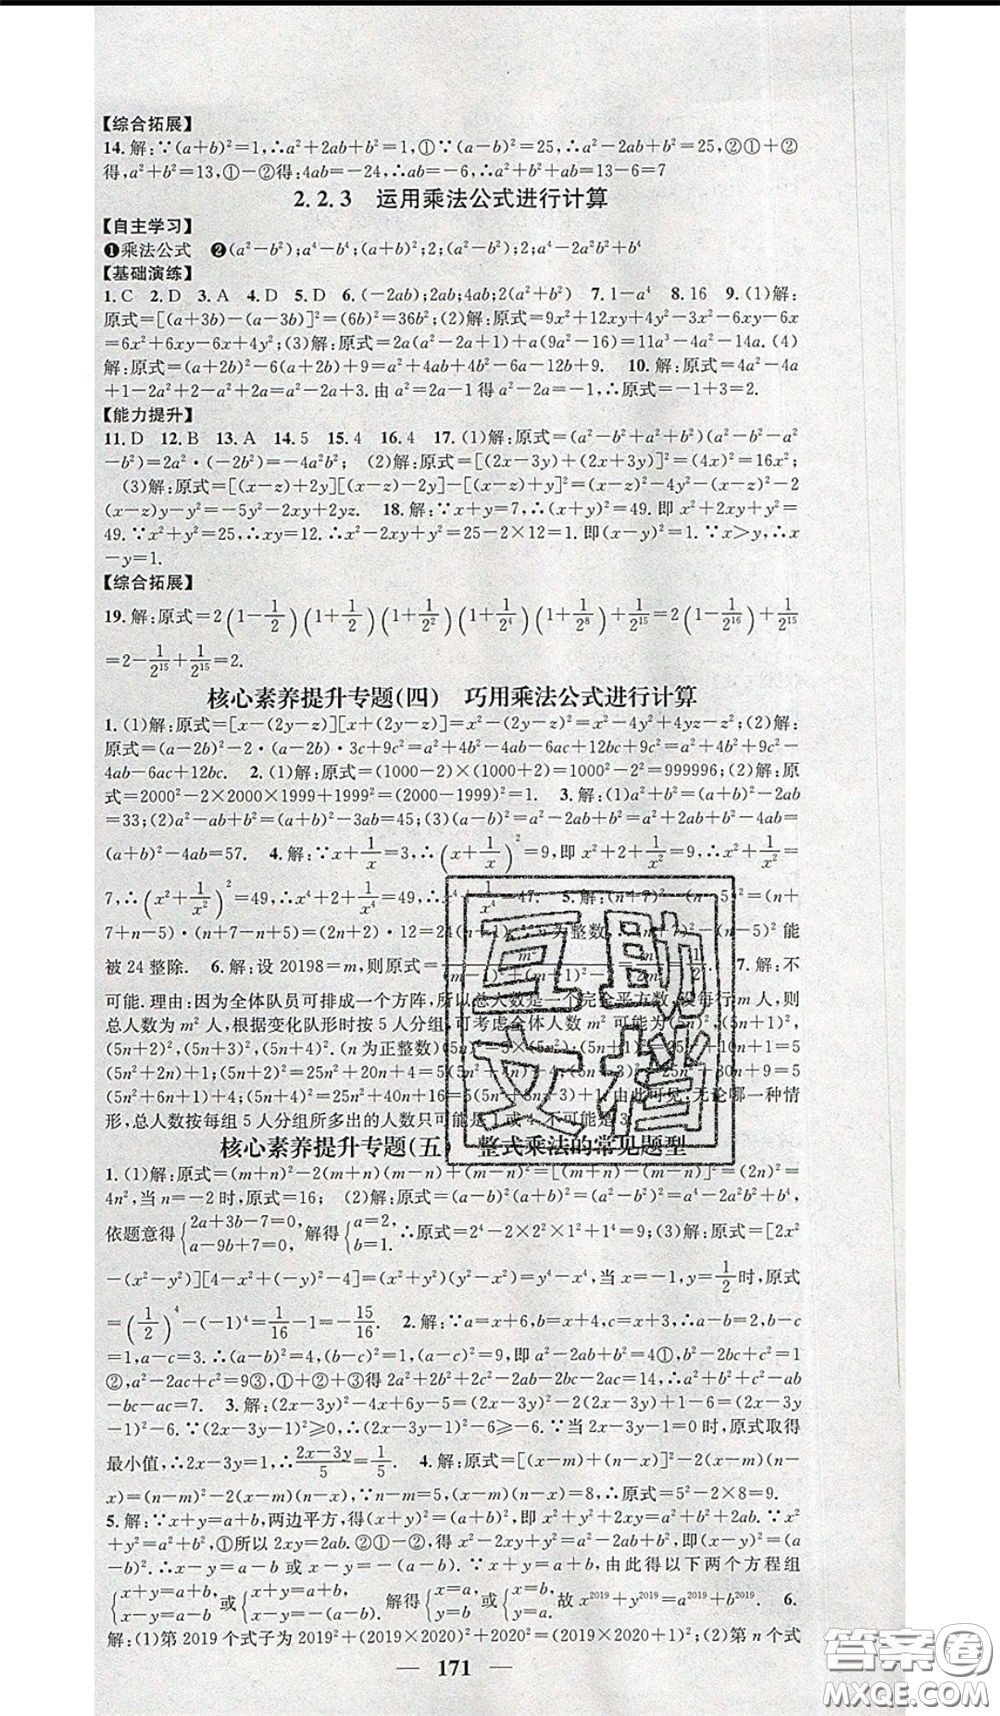 【综合拓展】
14.解:∵(a+b)²=1,∴a²+2ab+b²=1,①∵(a-b)²=25,∴a²-2ab+b²=25,②①+②
得,a²+b²=13,①-②得:4ab=-24,∴ab=-6,∴a²+b²+ab=13-6=7
2.2.3 运用乘法公式进行计算
【自主学习】
❶乘法公式 ❷(a²-b²);a⁴-b⁴;(a²+b²);2;(a²-b²);2;a⁴-2a²b²+b⁴
【基础演练】
1.C 2.D 3.A 4.D 5.D 6.(-2ab);2ab;4ab;2(a²+b²) 7.1-a⁴ 8.16 9.(1)解:
原式=[(a+3b)-(a-3b)]²=(6b)²=36b²;(2)解:原式=9x²+12xy+4y²-3x²-6xy-6x
=6x²+12xy-6xy-6x+4y²;(3)解:原式=2a(a²-2a+1)+a(9a²-16)=11a³-4a²-14a.(4)
解:原式=(a+2b)²-6(a+2b)+9=a²+4ab+4b²-6a-12b+9. 10.解:原式=4a²-4a
+1-2a²-2+a²-2a²+a=a²-2a+3.由 a²=2a-1 得 a²-2a=-1,∴原式=-1+3=2.
【能力提升】
11.D 12.B 13.A 14.5 15.4 16.4 17.(1)解:原式=(a²-b²+a²+b²)(a²-b²-a²
-b²)=2a²·(-2b²)=-4a²b²; (2)解:原式=[(2x-3y)+(2x+3y)]²=(4x)²=16x²;
(3)解:原式=[(x-z)+2y][(x-z)-2y]-[(x-z)+y]²=(x-z)²-4y²-(x-z)²-2
(x-z)y-y²=-5y²-2xy+2yz. 18.解:∵x+y=7,∴(x+y)²=49.即 x²+2xy+y²=
49.∵x²+y²=25,∴xy=12.∴x²-2xy+y²=25-2×12=1.即(x-y)²=1.∵x>y,∴x
-y=1.
【综合拓展】
19.解:原式=2(1-1/2)(1+1/2)(1+1/2²)(1+1/2⁴)(1+1/2⁸)+1/2¹⁵=2(1-1/2¹⁶)+1/2¹⁵
=2-1/2¹⁵+1/2¹⁵=2.
核心素养提升专题(四) 巧用乘法公式进行计算
1.(1)解:原式=[x-(2y-z)][x+(2y-z)]=x²-(2y-z)²=x²-4y²+4yz-z²;(2)解:
原式=(a-2b)²-2·(a-2b)·3c+9c²=a²+4b²-4ab-6ac+12bc+9c²=a²+4b²+9c²-
4ab-6ac+12bc. 2.(1)解:原式=(1000-2)×(1000+2)=1000²-2²=999996;(2)解:原
式=2000²-2×2000×1999+1999²=(2000-1999)²=1. 3.解:(1)a²+b²=(a+b)²-2ab
=33;(2)a²-ab+b²=(a+b)²-3ab=45;(3)(a-b)²=a²-2ab+b²=a²+2ab+b²-4ab=
(a+b)²-4ab=57. 4.解:∵x+1/x=3,∴(x+1/x)²=9,即 x²+2+1/x²=9,∴x²+1/x²=
7,∴(x²+1/x²)²=49,∴x⁴+2+1/x⁴=49,∴x⁴+1/x⁴=47. 5.解:(n+7)²-(n-5)²=(n+
7+n-5)·(n+7-n+5)=(2n+2)·12=24(n+1).∵n为整数,∴(n+7)²-(n-5)²能
被 24 整除. 6.解:设 20198=m,则原式=m²/((m-1)²+(m+1)²-2)=m²/2m²=1/2. 7.解:不
可能.理由:因为全体队员可排成一个方阵,所以总人数是一个完全平方数,设每行 m 人,则
总人数为 m² 人,根据变化队形时按 5 人分组,可考虑全体人数 m² 可能为(5n)²,(5n+1)²,
(5n+2)²,(5n+3)²,(5n+4)².(n 为正整数)(5n)²=5·5n²;(5n+1)²=25n²+10n+1=5
(5n²+2n)+1;(5n+2)²=25n²+20n+4=5(5n²+4n)+4;(5n+3)²=25n²+30n+9=5
(5n²+6n+1)+4;(5n+4)²=25n²+40n+16=5(5n²+8n+3)+1,由此可见:无论哪一种情
形,总人数按每组 5 人分组所多出的人数只可能是 1 或 4,不可能是 3.
核心素养提升专题(五) 整式乘法的常见题型
1.(1)解:原式=(m+n)²-2(m+n)(m-n)+(m-n)²=[(m+n)-(m-n)]²=(2n)²=
4n²,当 n=-2 时,原式=16; (2)解:原式=(a-b)²(a+b)²=(a²-b²)²=a⁴-2a²b²+b⁴,
依题意得{2a+3b-7=0, a-9b+7=0,解得{a=2, b=1.∴原式=2⁴-2×2²×1²+1⁴=9;(3)解:原式=[2x²
-(x²-y²)][4-x²+(x²+y²)-4]=(x²+y²)(-x²+y²)=y⁴-x⁴,当 x=-1,y=1/2时,原式
=(1/2)⁴-(-1)⁴=1/16-1=-15/16. 2.解:∵a=x+6,b=x+4,c=x+3,∴a-b=2,b-c
=1,a-c=3.∴(a-b)²=4,(b-c)²=1,(a-c)²=9,即 a²-2ab+b²=4①,b²-2bc+c²=1
②,a²-2ac+c²=9③,①+②+③得 2a²+2b²+2c²-2ab-2bc-2ac=14,∴a²+b²+c²-ab
-bc-ac=7. 3.解:(2x-3y)²-4x+6y-5=(2x-3y)²-2(2x-3y)+1-6=(2x-3y
-1)²-6.∵(2x-3y-1)²≥0,∴(2x-3y-1)²-6≥-6.∵当 2x-3y-1=0 时,原式取得
最小值,∴2x-3y=1,∴(2x-3y)/5=1/5. 4.解:原式=[(x-m)+(n-x)]²-2(x-m)(n-
x)=(n-m)²-2(x-m)(n-x),∵n-m=5,(x-m)(n-x)=8,∴原式=5²-2×8=9.
5.解:∵x+y=a+b,两边平方,得(x+y)²=(a+b)²,即 x²+y²+2xy=a²+b²+2ab.∵x²
+y²=a²+b²,①所以 2xy=2ab.②①-②,得 x²+y²-2xy=a²-2ab+b²,即(x-y)²=(a-
b)².∴x-y=a-b 或 x-y=-(a-b).∵x+y=a+b,由此得以下两个方程组
{x+y=a+b, x-y=a-b 或{x+y=a+b, x-y=-(a-b). 解得{x=a, y=b 或{x=b, y=a. 故 x²⁰¹⁹+y²⁰¹⁹=a²⁰¹⁹+b²⁰¹⁹. 6.
解:(1)第 2019 个式子为 2019²+(2019×2020)²+2020²=(2019×2020+1)²;(2)第 n 个式
— 171 —
互助
文档
答案圈
MXQE.COM